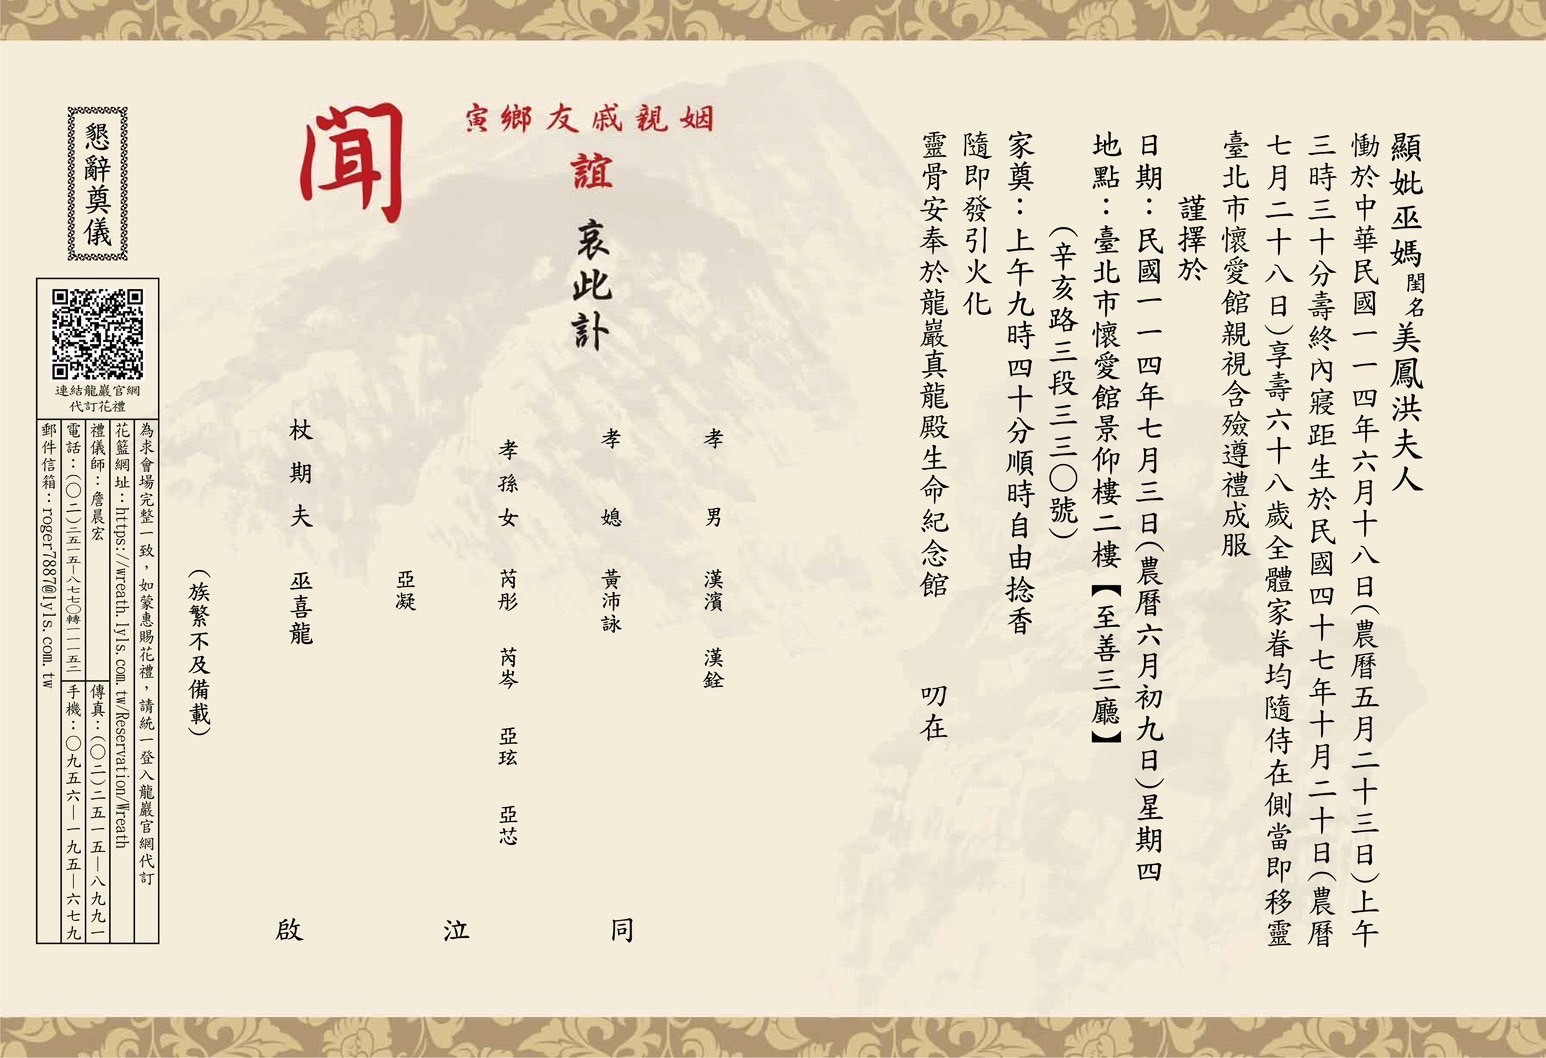 顯妣巫媽閨名美鳳洪夫人
慟於中華民國一一四年六月十八日(農曆五月二十三日)上午
三時三十分壽終內寢距生於民國四十七年十月二十日(農曆
七月二十八日)享壽六十八歲全體家眷均隨侍在側當即移靈
臺北市懷愛館親視含殮遵禮成服
謹擇於
日期：民國一一四年七月三日(農曆六月初九日)星期四
地點：臺北市懷愛館景仰樓二樓【至善三廳】
(辛亥路三段三三〇號)
家奠：上午九時四十分順時自由捻香
隨即發引火化
靈骨安奉於龍巖真龍殿生命紀念館 叨在
姻親戚友鄉寅
誼 哀此訃
聞
孝男 漢濱 漢銓
孝媳 黃沛詠
孝孫女 芮彤 芮岑 亞玹 亞芯
亞凝
杖期夫 巫喜龍
同泣啟
(族繁不及備載)
懇辭奠儀
連結龍巖官網
代訂花禮
為求會場完整一致，如蒙惠賜花禮，請統一登入龍巖官網代訂
花籃網址：https://wreath.lyls.com.tw/Reservation/Wreath
禮儀師：詹晨宏 傳真：(〇二)二五一五—八九九一
電話：(〇二)二五一五—八七七〇轉一一一五二 手機：〇九五六—一九五—六七九
郵件信箱：roger7887@lyls.com.tw